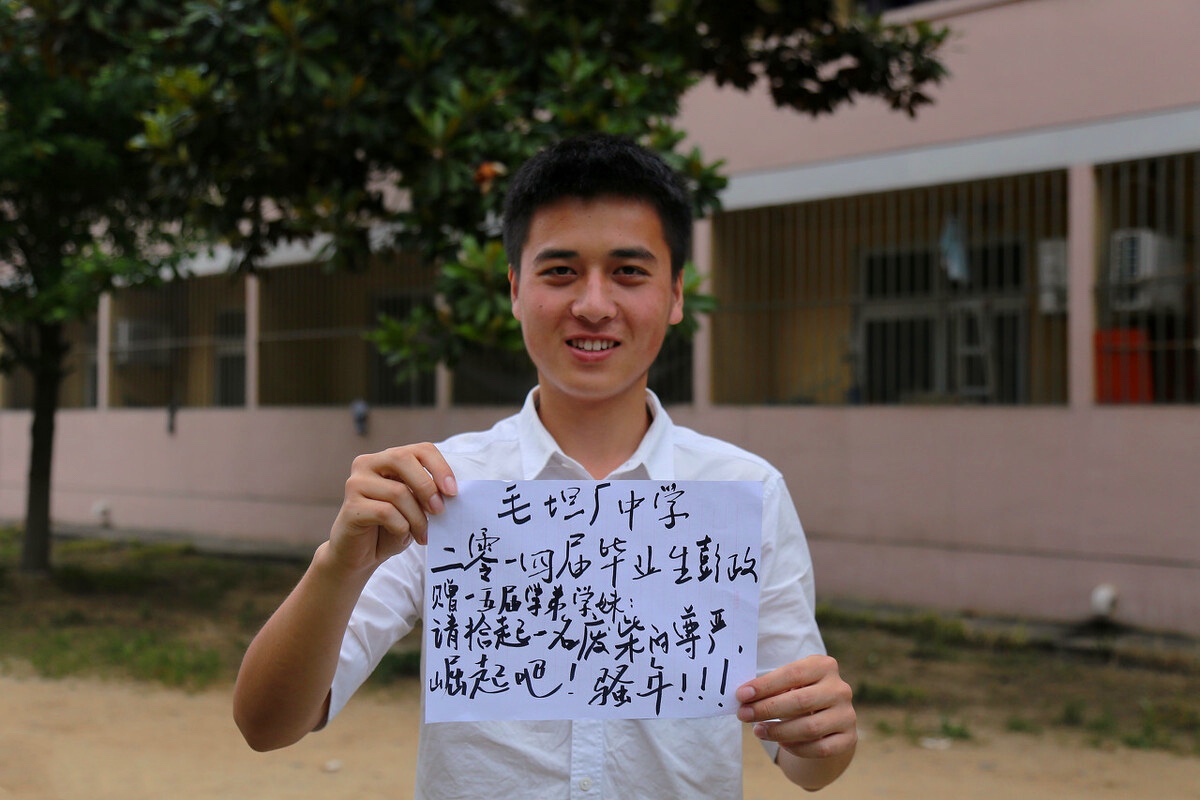 毛坦厂中学
二零一四届毕业生彭政
赠一五届学弟学妹:
请拾起一名废柴的尊严,
崛起吧!骚年!!!